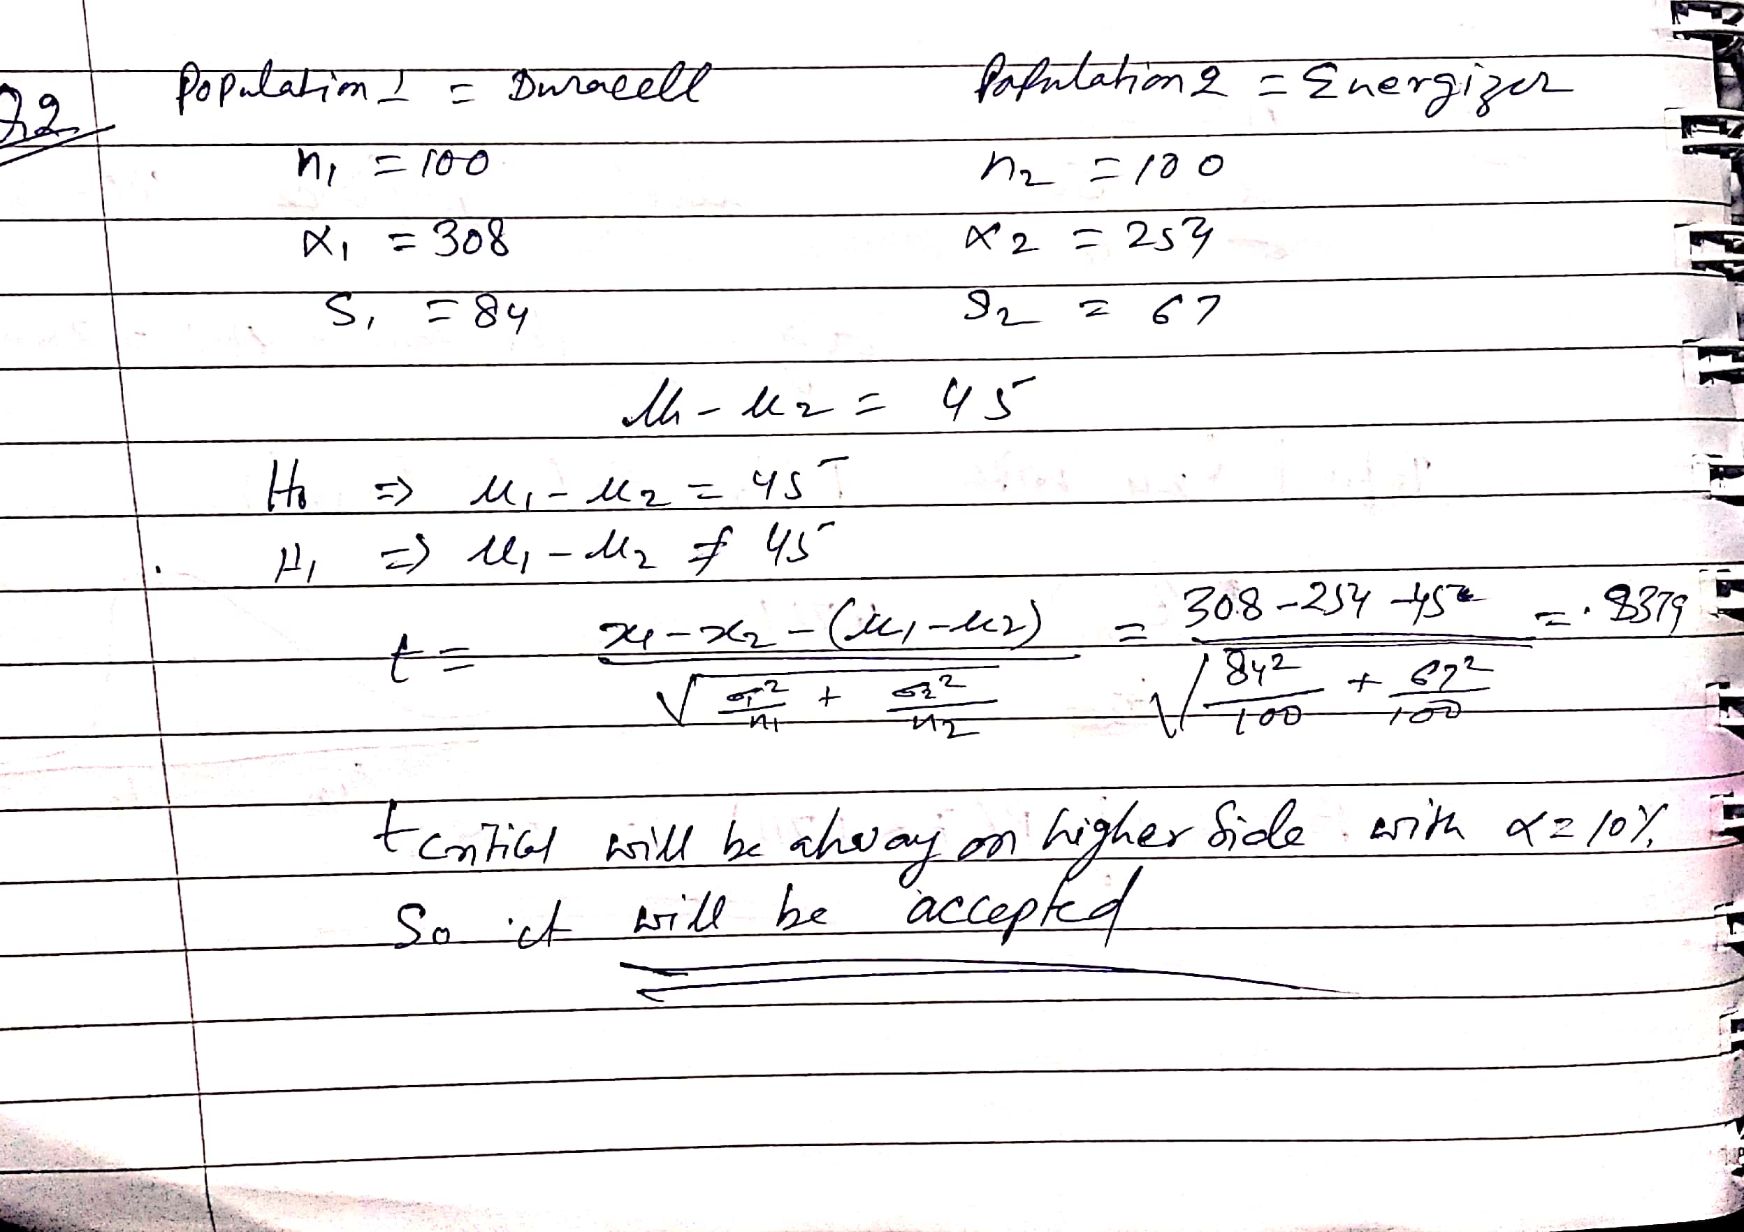 Q2
Population 1 = Duracell    Population 2 = Energizer
n₁ = 100    n₂ = 100
x₁ = 308    x₂ = 254
S₁ = 84    S₂ = 67
μ₁ - μ₂ = 45
H₀ ⇒ μ₁ - μ₂ = 45
H₁ ⇒ μ₁ - μ₂ ≠ 45
t = (x₁ - x₂ - (μ₁ - μ₂)) / √(σ₁²/n₁ + σ₂²/n₂) = (308 - 254 - 45) / √(84²/100 + 67²/100) = .8379
t critical will be alway on higher side with α = 10%
So it will be accepted